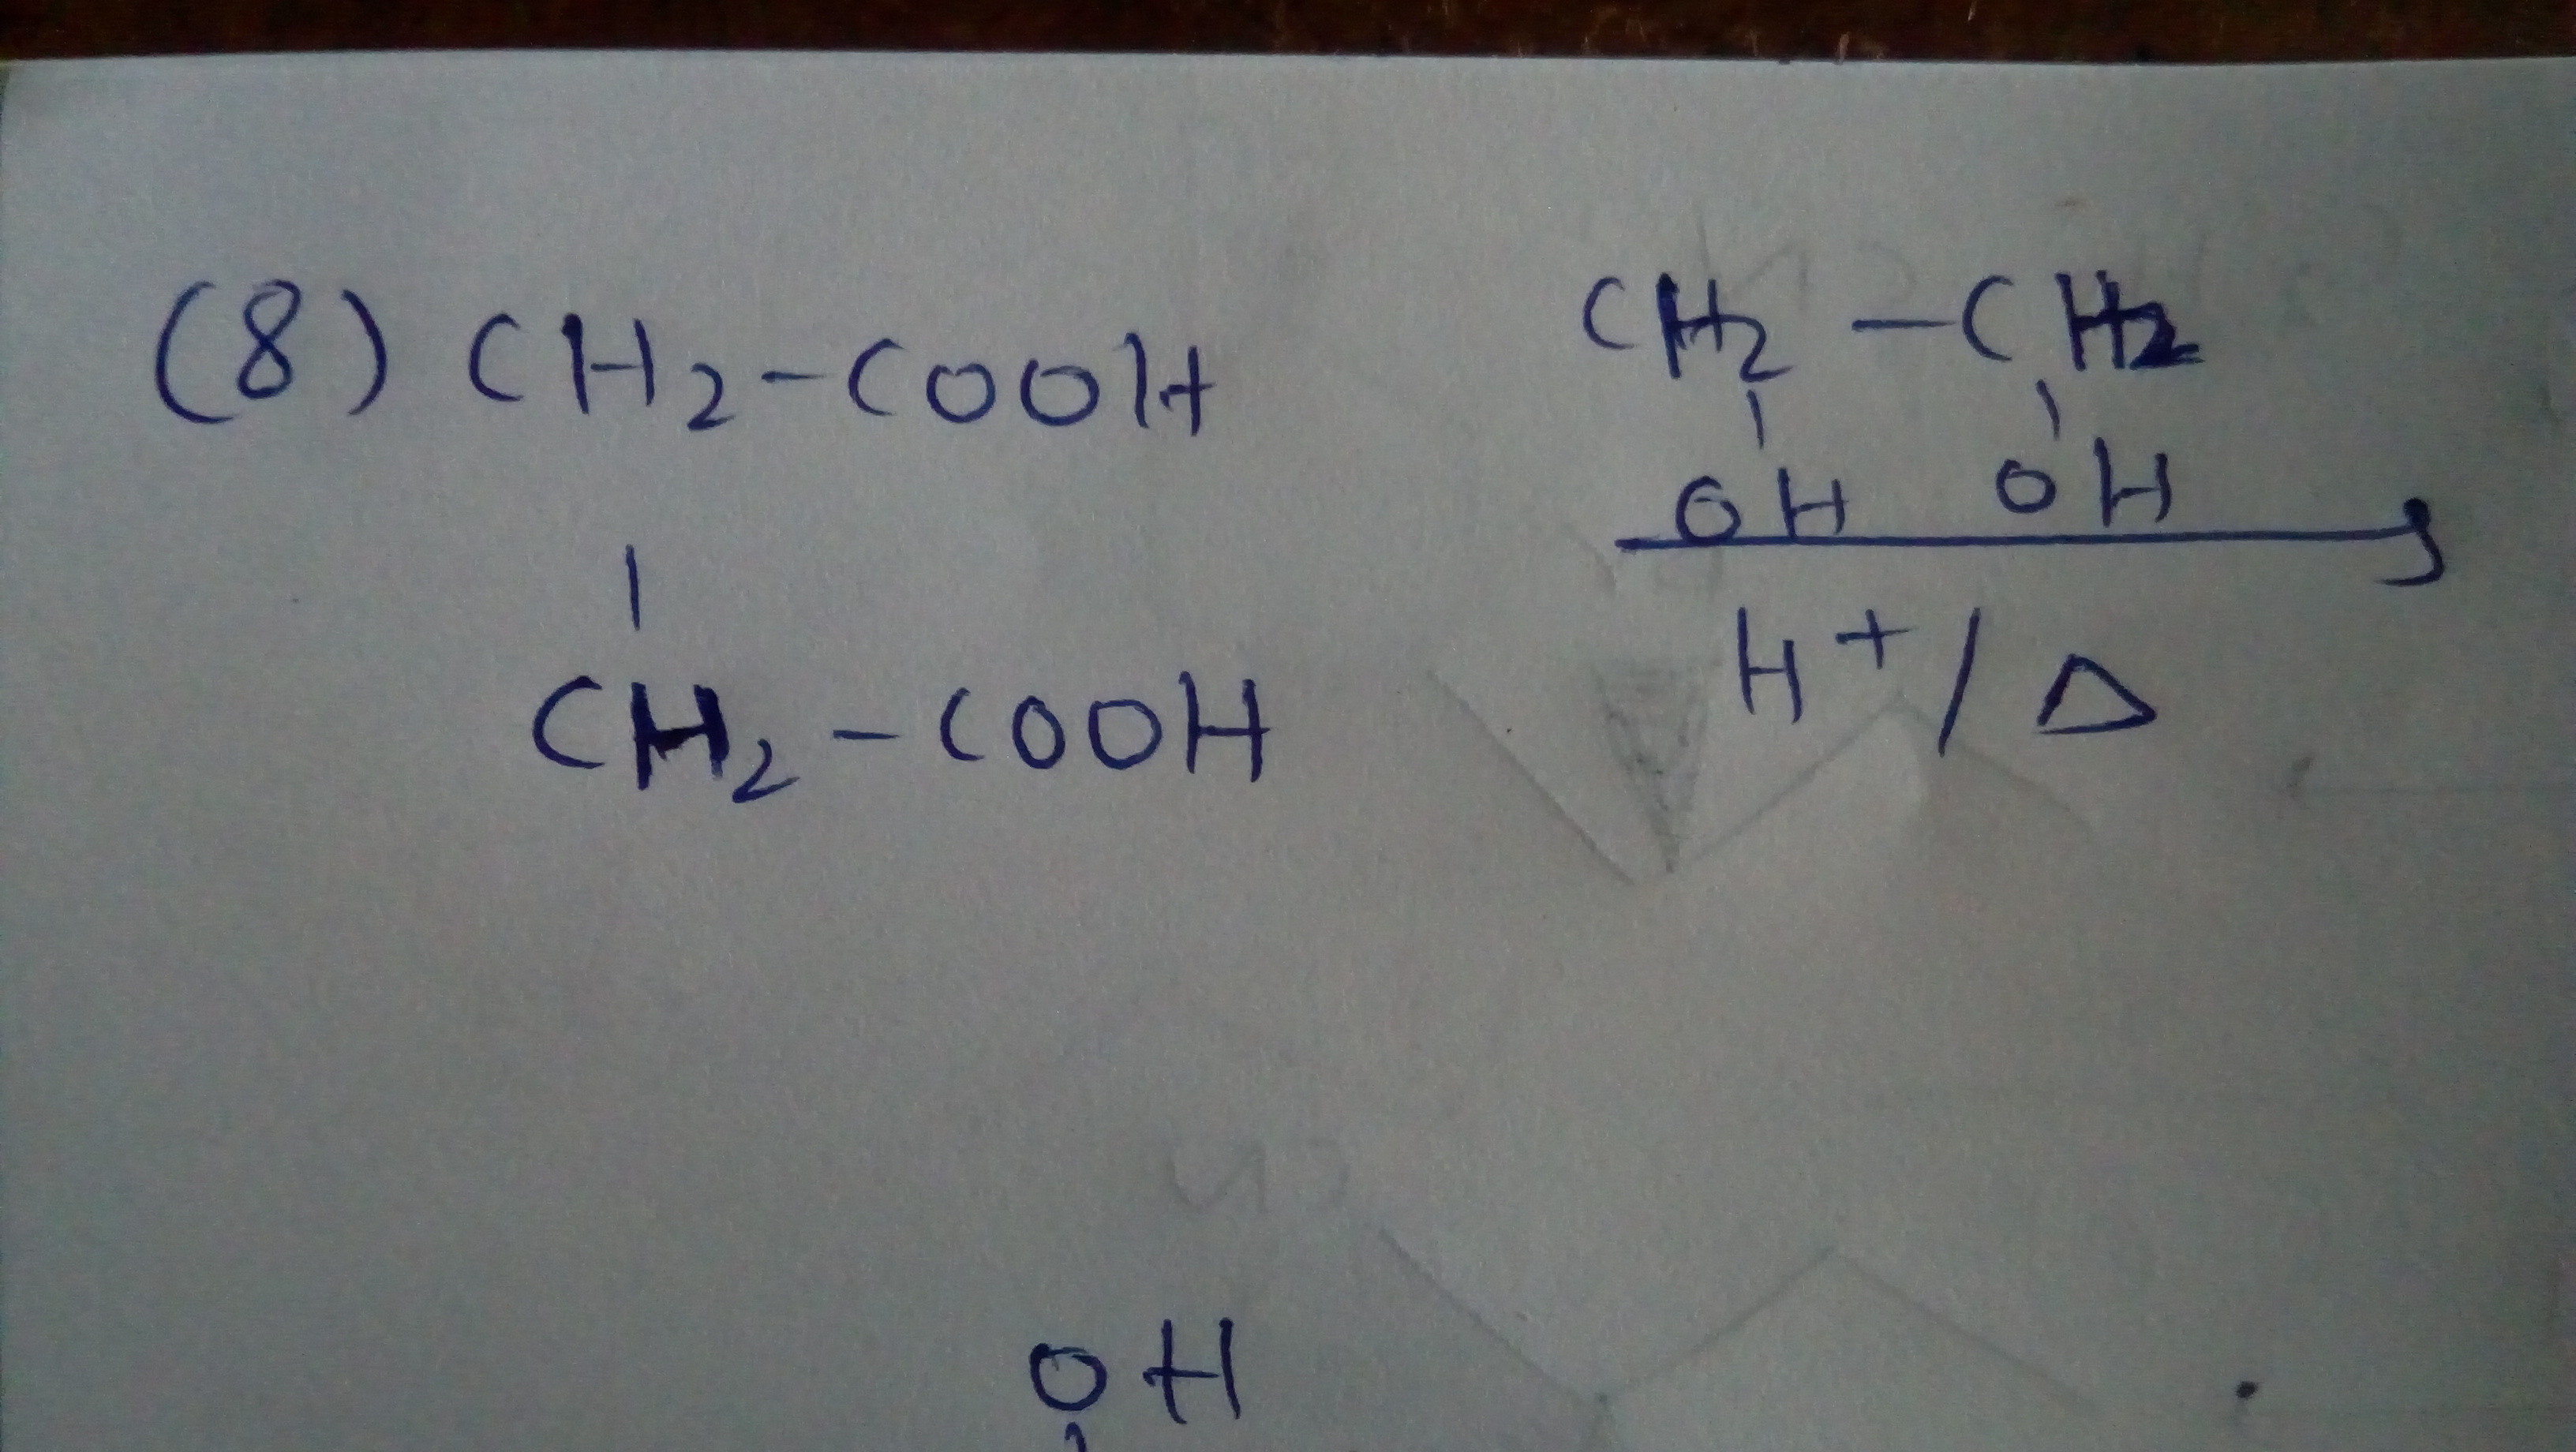 (8) CH2-COOH
|
CH2-COOH
CH2-CH2
| |
OH OH
H+/Δ
OH